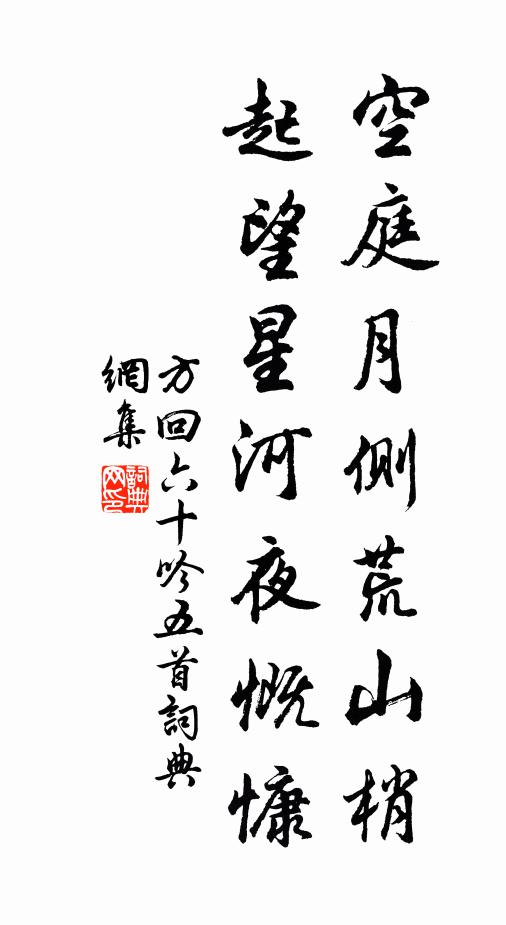 空庭月側荒山梢
起望星河夜慨慷
方回六十吟五首詞典
網集
詞典網印